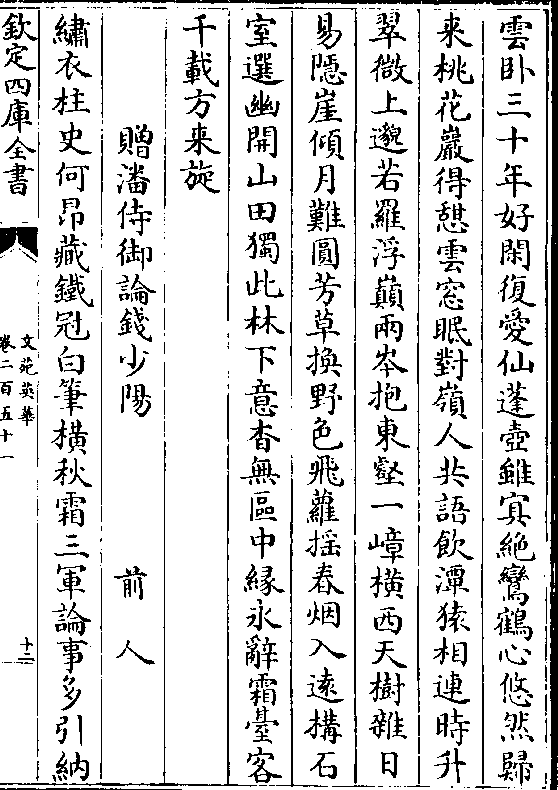 雲卧三十年好閑復愛仙蓬壺雖㝠絶鸞鶴心悠然歸
来桃花巖得憇雲窓眠對嶺人共語飲潭猿相連時升
翠微上邈若羅浮巔兩岑抱東壑一嶂横西天樹雜日
易隱崖傾月難圓芳草換野色飛蘿揺春烟入逺搆石
室選幽開山田獨此林下意杳無區中縁永辭霜臺客
千載方来旋
贈潘侍御論錢少陽　前人
繡衣柱史何昂藏鐵冠白筆横秋霜三軍論事多引納
欽定四庫全書
文苑英華
卷二百五十一
十二